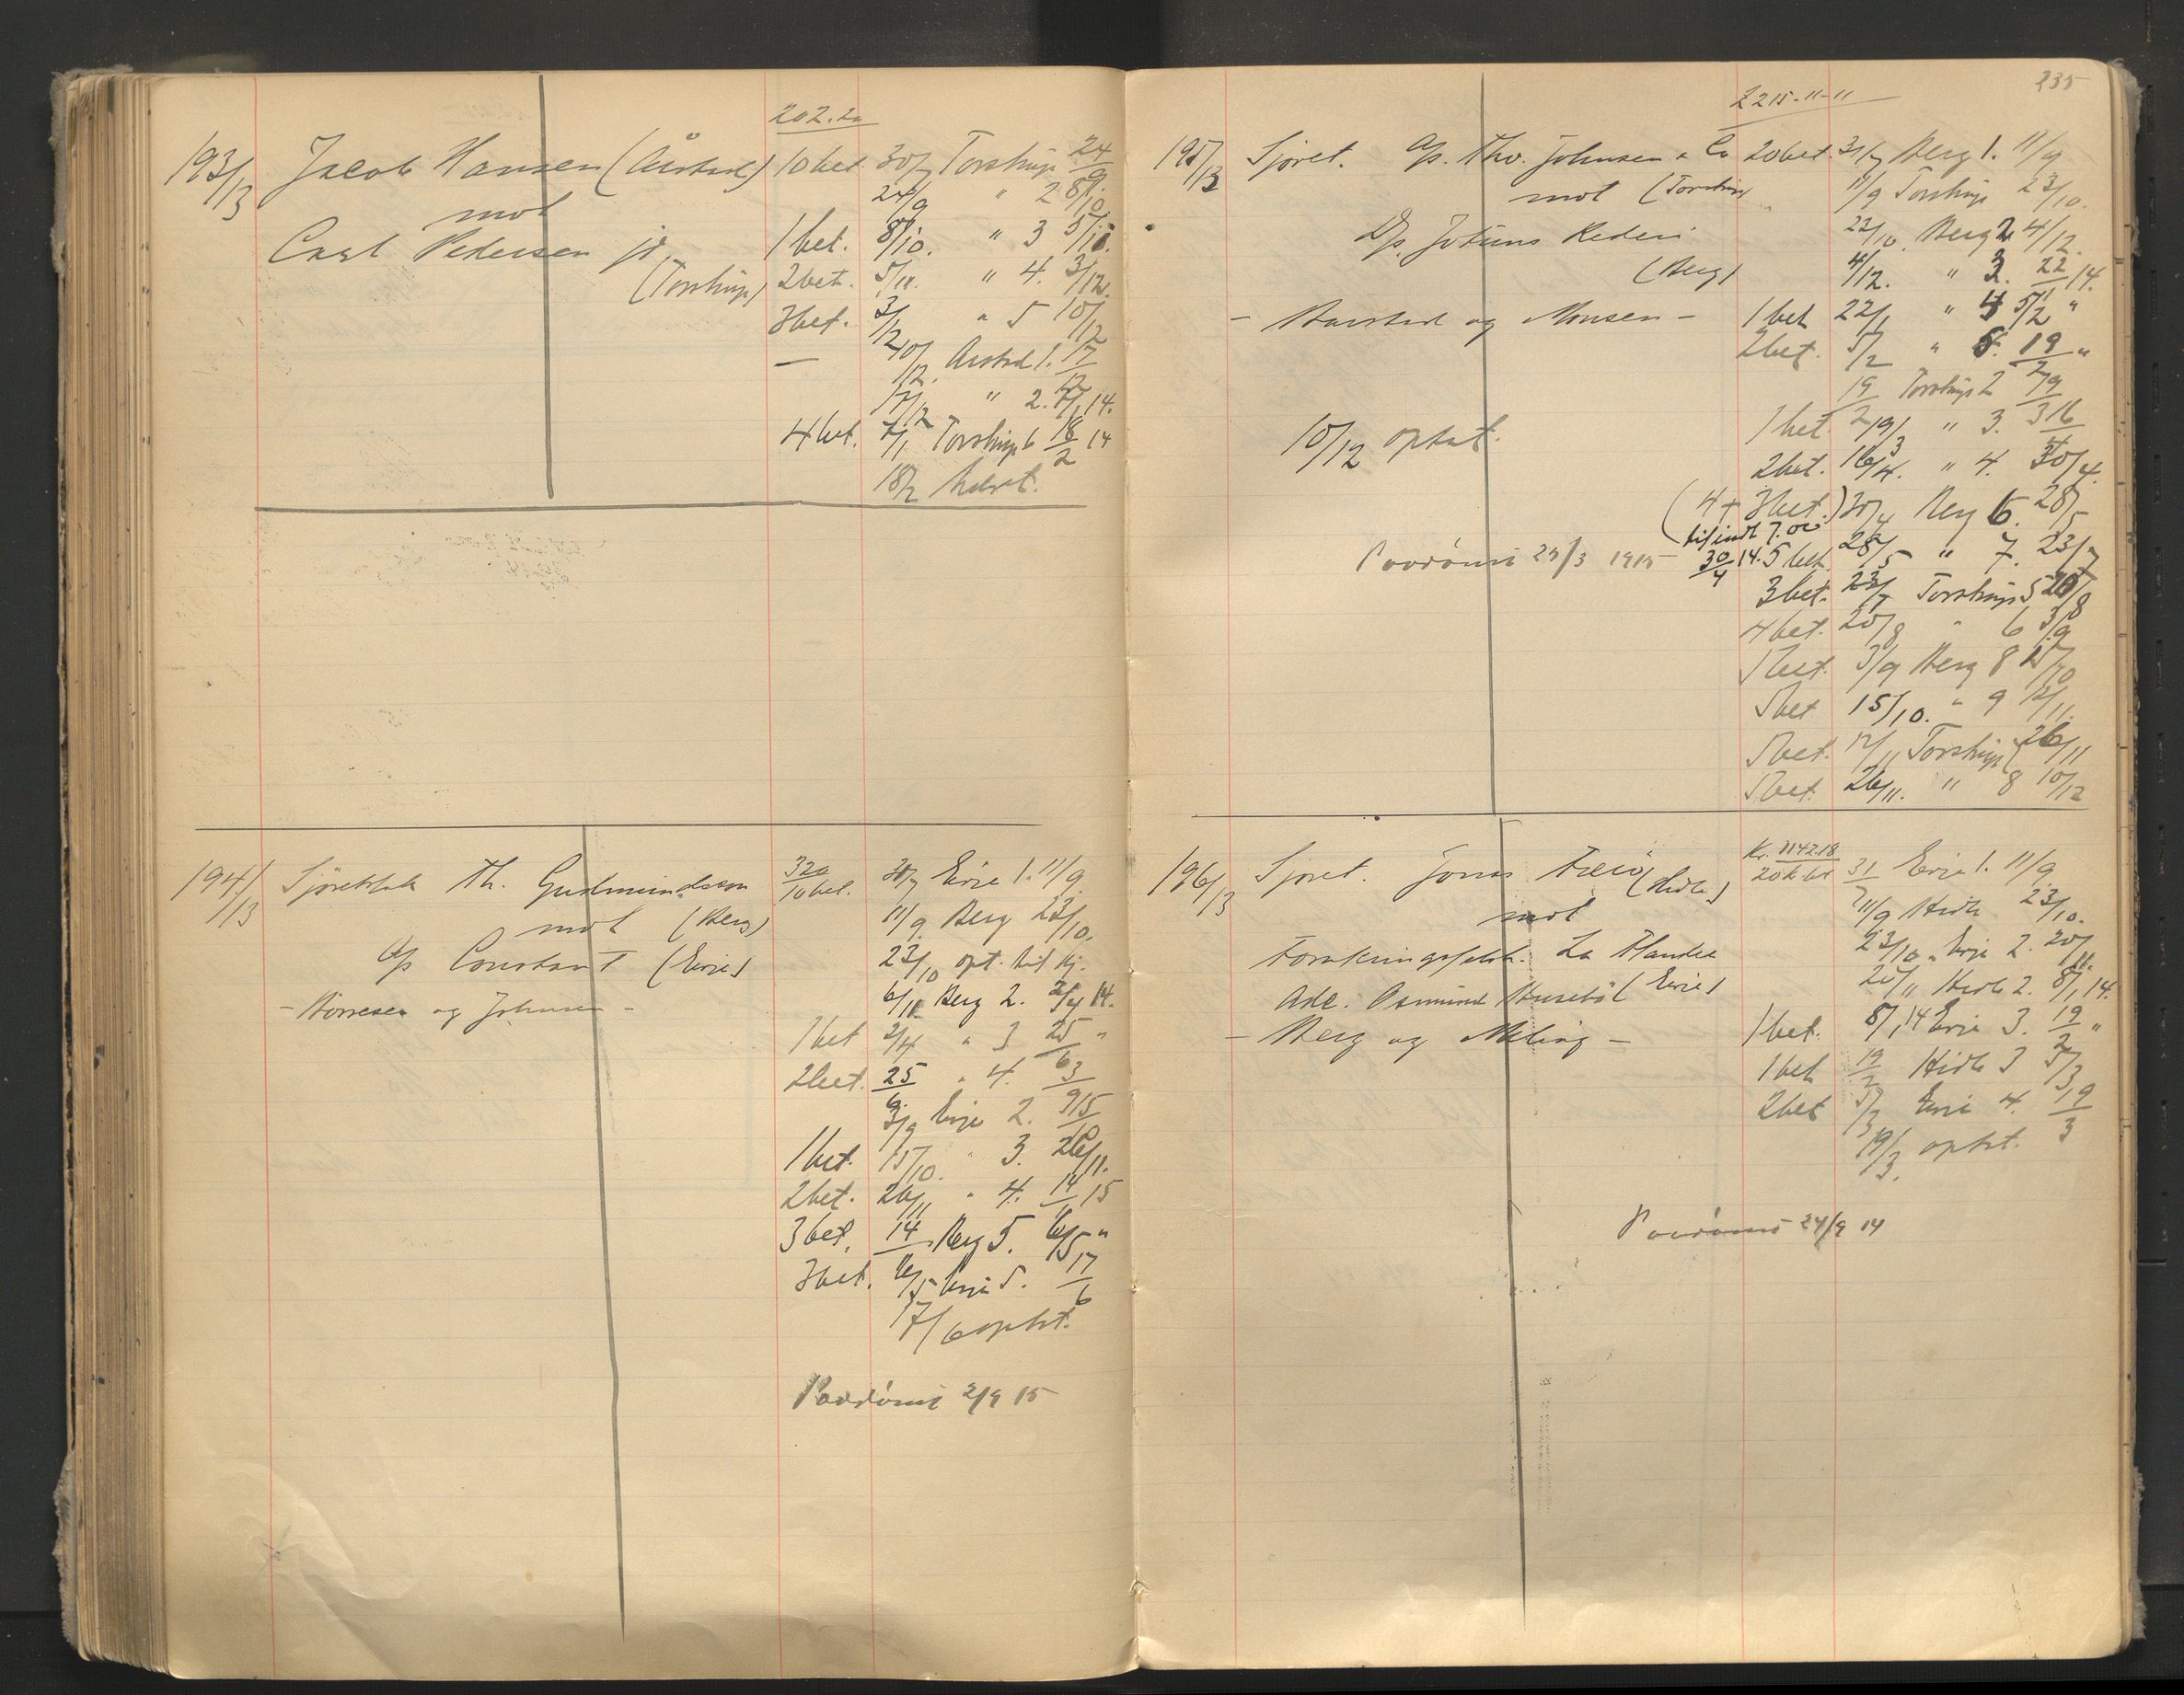 202.20
193/13 Jacob Hansen (Aarstad) 10 bet. 30/7 Torstrup 24/9
mot 24/9 " 2 8/10.
Carl Pedersen jr. 1 bet. 8/10. " 3 5/11.
(Torstrup) 2 bet. 5/11. " 4. 3/12.
3 bet. 3/12 " 5 10/12
— 10/12. Aarstad 1. 17/12
17/12 " 2. 7/1 14.
4 bet. 7/1 Torstrup 6 18/2 14
18/2 hævet.
194/13 Sjøretssak Th. Gudmundsen 320 10 bet. 30/7 Evje 1. 11/9.
mot (Berg) 11/9. Berg 23/10.
A/s Constant (Evje) 23/10 opt. til Kj.
6/11. Berg 2. 2/4 14.
1 bet 2/4 " 3 25/6 "
2 bet. 25/6. " 4. 3/9
3/9 Evje 2. 15/10
1 bet. 15/10. " 3. 26/11.
2 bet. 26/11 " 4. 14/1 15
3 bet. 14/1 Berg 5. 6/5 "
3 bet. 6/5 Evje 5. 17/6
17/6 optat.
Paadømt 2/9 15
235
£ 215-11-11
195/13 Sjøret. A/s. Thv. Johnsen & Co 20 bet. 31/7 Berg 1. 11/9
mot (Torstrup) 11/9 Torstrup 23/10.
D/s. Jotuns Rederi 22/10. Berg 2 4/12.
(Berg) 4/12. " 3. 22/1 14.
1 bet 22/1 " 4 5/2 "
2 bet. 5/2 " 5. 19/2 "
19/2 Torstrup 2 19/3
10/12 optat. 1 bet. 19/3 " 3. 16/4
2 bet. 16/4. " 4. 30/4.
(4 + 3 bet.) 30/4 Berg 6. 28/5
Paadømt 25/3 1915 30/4 14. 5 bet. 28/5 " 7. 23/7
3 bet. 23/7 Torstrup 5 20/8
4 bet. 20/8 " 6 3/9
5 bet. 3/9 Berg 8 15/10
5 bet 15/10. " 9 12/11.
5 bet. 12/11 Torstrup 7 26/11
5 bet. 26/11. " 8 10/12
196/13 Sjøret. Jonas (Hidle) 20 bet 31/7 Evje 1. 11/9
mot 11/9 Hidle 23/10.
23/10. Evje 2. 20/11.
20/11 Hidle 2. 8/1 14.
(Evje) 1 bet. 8/1 14 Evje 3. 19/2 "
- Berg og Meling - 1 bet 19/2 Hidle 3 5/3
2 bet 5/3 Evje 4. 19/3
19/3. optat.
Paadømt 24/9 14